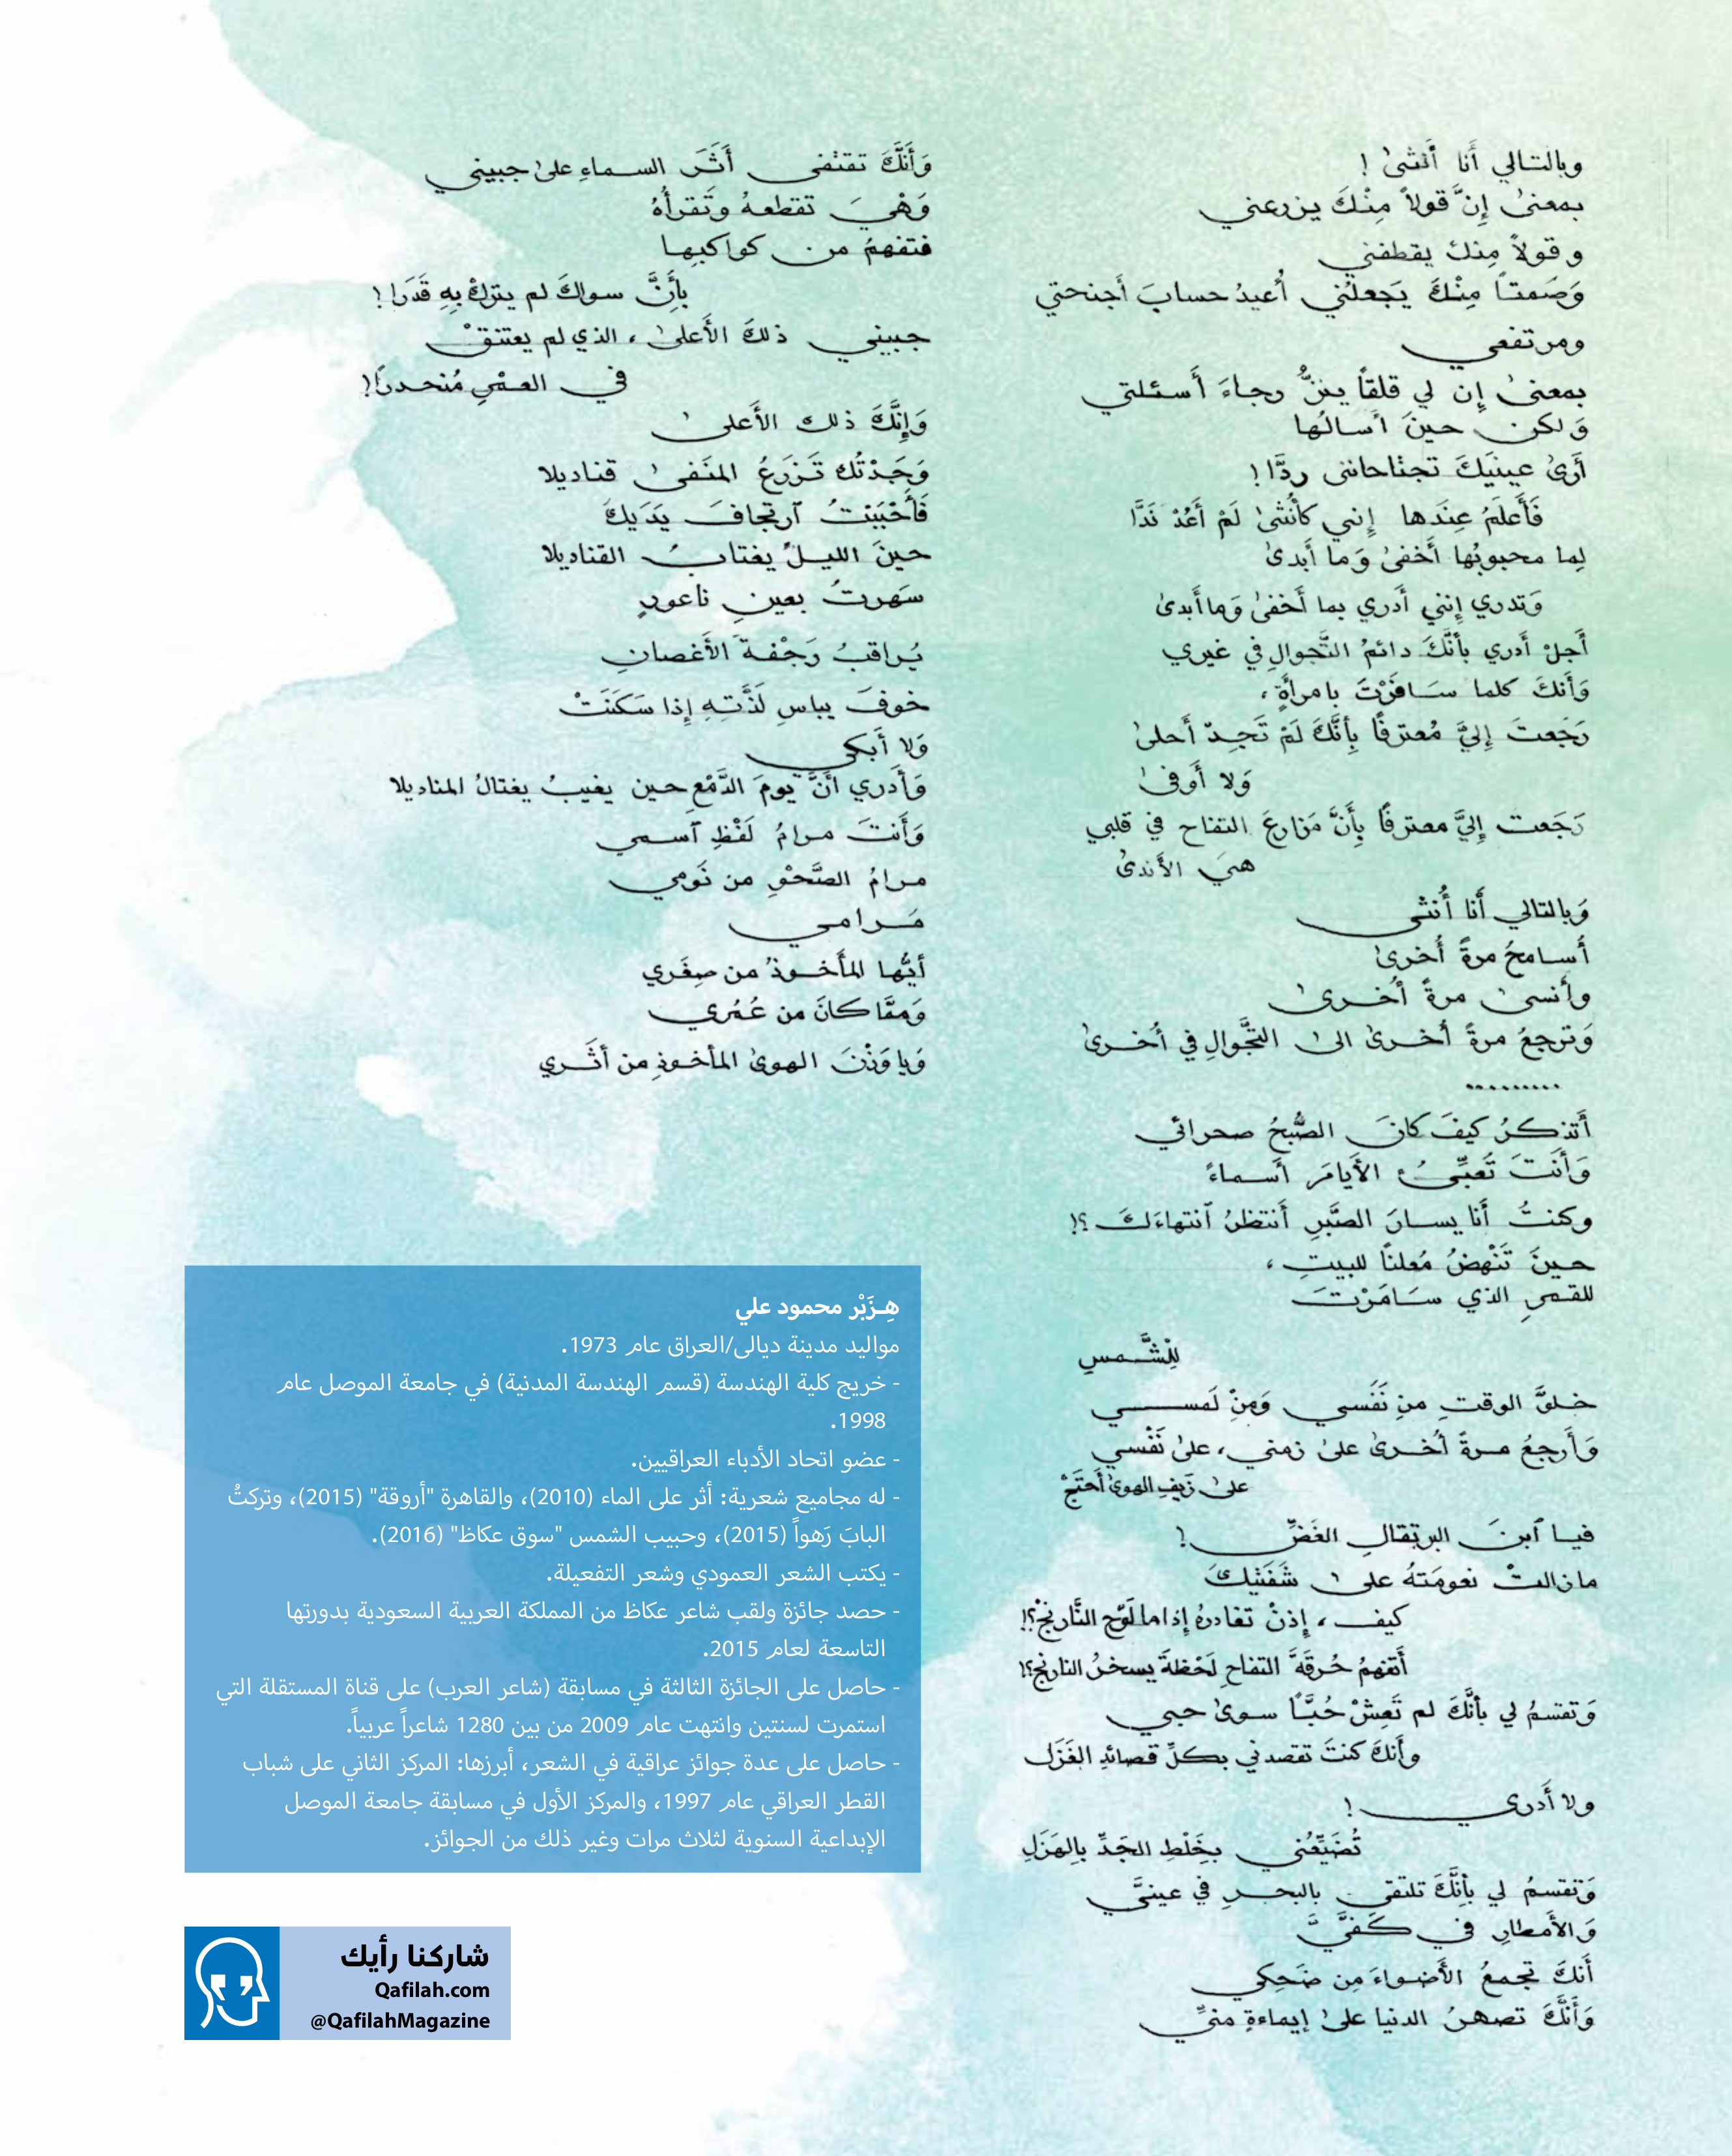 وبالتالي أَنا أُنثىٰ !
بمعنىٰ إِنَّ قولاً مِنْكَ يزرعني
وقولاً مِنكَ يقطفني
وَصَمتاً مِنْكَ يَجعلُني أُعيدُ حسابَ أجنحتي
ومرتفعي
بمعنىٰ إِن لي قلقاً يهزُّ رجاءَ أَسئلتي
وَلكن حينَ أَسالُها
أَرىٰ عينَيكَ تجتاحانني ردَّا !
فَأَعلَمُ عِندَها إِنني كأُنثىٰ لَمْ أَعُدْ نَدَّا
لِما محبوبُها أَخفىٰ وَما أَبدىٰ
وَتدري إِنني أَدري بما أَخفىٰ وَما أَبدىٰ
أَجلْ أَدري بأنَّكَ دائمُ التَّجوالِ في غيري
وَأَنكَ كلما سَافَرْتَ بامرأةٍ،
رَجَعتَ إِليَّ مُعترفًا بِأَنَّكَ لَمْ تَجِدْ أَحلىٰ
وَلا أَوفىٰ
رَجَعت إِليَّ معترفًا بِأَنَّ مَزارعَ التفاح في قلبي
هيَ الأَندىٰ
وَبالتالي أَنا أُنثى
أُسامحُ مرةً أُخرىٰ
وأَنسىٰ مرةً أُخرىٰ
وَترجعُ مرةً أُخرىٰ الىٰ التجَّوالِ في أُخرىٰ
.........
أَتذكرُ كيفَ كانَ الصُّبحُ صحرائي
وَأَنتَ تُعبِّئُ الأَيامَ أَسماءً
وكنتُ أَنا يسارَ الصَّبرِ أَنتظرُ ٱنتهاءَكَ ؟!
حينَ تَنْهضُ مُعلنًا للبيتِ،
للقمرِ الذي سَامَرْتَ
لِلْشَّمسِ
خلقَ الوقتِ من نَفَسي وَمِنْ لَمسي
وَأَرجعُ مرةً أُخرىٰ علىٰ زمني، علىٰ نَفْسي
علىٰ زَيفِ الهوىٰ أَحتَجْ
فيا ٱبنَ البرتقالِ الغَضِّ !
ما زالتْ نعومَتهُ علىٰ شَفَتَيكَ
كيف، إِذنْ تغادرهُ إِذا ما لَوَّح النَّارنجْ؟!
أَتفهمُ حُرقةَ التفاحِ لَحْظةَ يسخرُ النارنج؟!
وَتقسمُ لي بأنَّكَ لم تَعِشْ حُبًّا سوىٰ حبي
وأَنكَ كنتَ تقصدني بكلِّ قصائدِ الغَزَل
ولا أَدري !
تُضَيِّعُني بخَلْطِ الجَدِّ بِالهَزَلِ
وَتقسمُ لي بأَنَّكَ تلتقي بالبحرِ في عينيَّ
وَالأَمطارِ في كَفَّيَّ
أَنكَ تجمعُ الأَضواءَ مِن ضَحِكي
وَأَنَّكَ تصهرُ الدنيا علىٰ إِيماءةٍ منيِّ
وَأَنَّكَ تقتفي أَثَرَ السماءِ علىٰ جبيني
وَهْيَ تقطعهُ وتَقرأُهُ
فتفهمُ من كواكبها
بِأَنَّ سواكَ لم يترك بِهِ قَدَرا !
جبيني ذلكَ الأَعلىٰ، الذي لم يعتنقْ
في العمْرِ مُنحدرًا!
وَإِنَّكَ ذلك الأَعلىٰ
وَجَدْتُك تَزرَعُ المنَفىٰ قناديلا
فَأَحْبَبْتُ ٱرتجافَ يَدَيكَ
حينَ الليلُ يغتابُ القناديلا
سَهرتُ بعينِ ناعورٍ
يُراقبُ رَجْفةَ الأَغصانِ
خوفَ يباسِ لَذَّتهِ إِذا سَكَنَتْ
وَلا أَبكي
وَأَدري أَنَّ يومَ الدَّمْعِ حين يغيبُ يغتالُ المناديلا
وَأَنتَ مرامُ لَفْظِ ٱسمي
مرامُ الصَّحْوِ من نَومي
مَرامي
أيُّها المأخوذُ من صِغَري
وَممَّا كانَ من عُمُري
وَيا وَزْنَ الهوىٰ المأخوذِ من أَثَري
هِـزَبْر محمود علي
مواليد مدينة ديالى/العراق عام 1973.
- خريج كلية الهندسة (قسم الهندسة المدنية) في جامعة الموصل عام
1998.
- عضو اتحاد الأدباء العراقيين.
- له مجاميع شعرية: أثر على الماء (2010)، والقاهرة "أروقة" (2015)، وتركتُ
البابَ رَهواً (2015)، وحبيب الشمس "سوق عكاظ" (2016).
- يكتب الشعر العمودي وشعر التفعيلة.
- حصد جائزة ولقب شاعر عكاظ من المملكة العربية السعودية بدورتها
التاسعة لعام 2015.
- حاصل على الجائزة الثالثة في مسابقة (شاعر العرب) على قناة المستقلة التي
استمرت لسنتين وانتهت عام 2009 من بين 1280 شاعراً عربياً.
- حاصل على عدة جوائز عراقية في الشعر، أبرزها: المركز الثاني على شباب
القطر العراقي عام 1997، والمركز الأول في مسابقة جامعة الموصل
الإبداعية السنوية لثلاث مرات وغير ذلك من الجوائز.
شاركنا رأيك
Qafilah.com
@QafilahMagazine